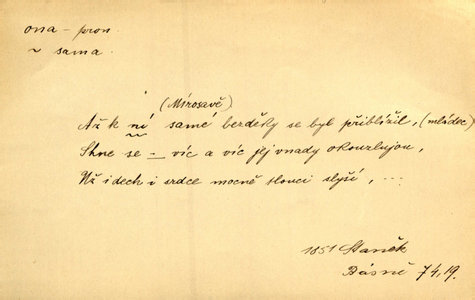 ona – pron
~ sama.
(Mirosavě)
Až k ní samé bezděky se byl přiblížil, (mládec)
Shne se – víc a víc jej vnady okouzlujou,
Už i dech i srdce mocně tlouci slyší, ...
1851 Staněk
Básně 74, 19.